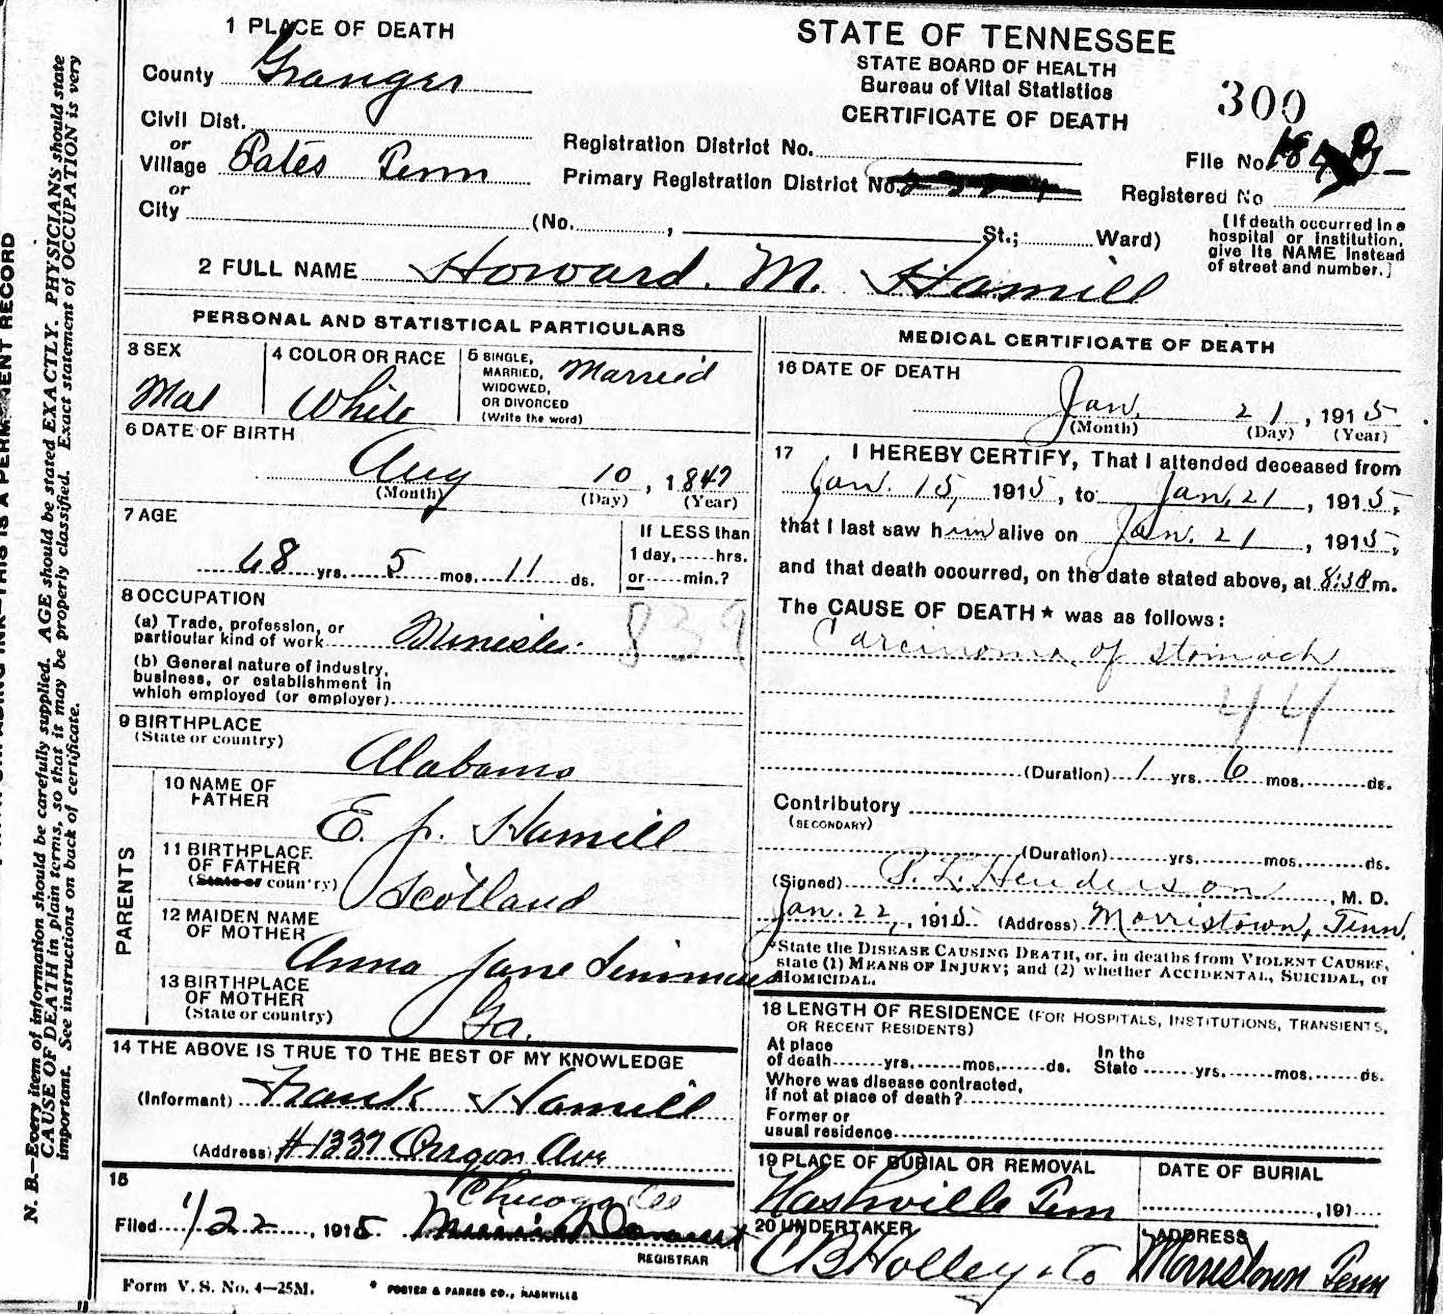 1 PLACE OF DEATH
County Granger
Civil Dist.
or
Village Tates Tenn
or
City (No. , St.; Ward)
STATE OF TENNESSEE
STATE BOARD OF HEALTH
Bureau of Vital Statistics
CERTIFICATE OF DEATH
300
Registration District No.
File No.
Primary Registration District No.
Registered No
(If death occurred in a
hospital or institution,
give its NAME instead
of street and number.)
2 FULL NAME Howard. M. Hamill
PERSONAL AND STATISTICAL PARTICULARS
3 SEX
Mal
4 COLOR OR RACE
White
5 SINGLE,
MARRIED,
WIDOWED,
OR DIVORCED
(Write the word)
Married
6 DATE OF BIRTH
Aug 10, 1847
(Month) (Day) (Year)
7 AGE
68 yrs. 5 mos. 11 ds.
If LESS than
1 day, hrs.
or min.?
8 OCCUPATION
(a) Trade, profession, or
particular kind of work Minister
839
(b) General nature of industry,
business, or establishment in
which employed (or employer)
9 BIRTHPLACE
(State or country)
Alabama
PARENTS
10 NAME OF
FATHER
E. J. Hamill
11 BIRTHPLACE
OF FATHER
(State or country)
Scotland
12 MAIDEN NAME
OF MOTHER
Anna Jane Simmons
13 BIRTHPLACE
OF MOTHER
(State or country)
Ga.
14 THE ABOVE IS TRUE TO THE BEST OF MY KNOWLEDGE
(Informant) Frank Hamill
(Address) #1337 Oregon Ave
Chicago Ill
15
Filed 1/22, 1915
REGISTRAR
Form V. S. No. 4—25M.
* FOSTER & PARKES CO., NASHVILLE
MEDICAL CERTIFICATE OF DEATH
16 DATE OF DEATH
Jan. 21, 1915
(Month) (Day) (Year)
17 I HEREBY CERTIFY, That I attended deceased from
Jan. 15, 1915, to Jan. 21, 1915,
that I last saw him alive on Jan. 21, 1915,
and that death occurred, on the date stated above, at 8:38 m.
The CAUSE OF DEATH* was as follows:
Carcinoma of stomach
44
(Duration) 1 yrs. 6 mos. ds.
Contributory
(SECONDARY)
(Duration) yrs. mos. ds.
(Signed) P. L. Henderson, M. D.
Jan. 22, 1915 (Address) Morristown, Tenn.
*State the DISEASE CAUSING DEATH, or, in deaths from VIOLENT CAUSES,
state (1) MEANS OF INJURY; and (2) whether ACCIDENTAL, SUICIDAL, or
HOMICIDAL.
18 LENGTH OF RESIDENCE (FOR HOSPITALS, INSTITUTIONS, TRANSIENTS,
OR RECENT RESIDENTS)
At place
of death yrs. mos. ds.
In the
State yrs. mos. ds.
Where was disease contracted,
If not at place of death?
Former or
usual residence
19 PLACE OF BURIAL OR REMOVAL
Nashville Tenn
DATE OF BURIAL
, 191
20 UNDERTAKER
C B Holley & Co
ADDRESS
Morristown Tenn
N. B.—Every item of information should be carefully supplied. AGE should be stated EXACTLY. PHYSICIANS should state
CAUSE OF DEATH in plain terms, so that it may be properly classified. Exact statement of OCCUPATION is very
important. See instructions on back of certificate.
INK—THIS IS A PERMANENT RECORD